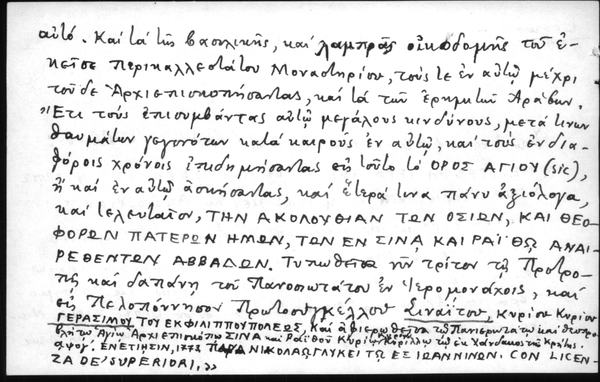 αὐτό. Καὶ τὰ τῆς βασιλικῆς, καὶ λαμπρᾶς οἰκοδομῆς τοῦ ἐ-
κεῖσε περικαλλεστάτου Μοναστηρίου, τούς τε ἐν αὐτῷ μέχρι
τοῦδε Ἀρχιεπισκοπήσαντας, καὶ τὰ τῶν ἐρημιτῶν Ἀράβων.
"Ἔτι τοὺς ἐπισυμβάντας αὐτῷ μεγάλους κινδύνους, μετά τινων
θαυμάτων γεγονότων κατὰ καιροὺς ἐν αὐτῷ, καὶ τοὺς ἐν δια-
φόροις χρόνοις ἐπιδημήσαντας εἰς τοῦτο τὸ ΟΡΟΣ ΑΓΙΟΥ (sic),
ἢ καὶ ἐν αὐτῷ ἀσκήσαντας, καὶ ἕτερά τινα πάνυ ἀξιόλογα,
καὶ τελευταῖον, ΤΗΝ ΑΚΟΛΟΥΘΙΑΝ ΤΩΝ ΟΣΙΩΝ, ΚΑΙ ΘΕΟ-
ΦΟΡΩΝ ΠΑΤΕΡΩΝ ΗΜΩΝ, ΤΩΝ ΕΝ ΣΙΝΑ ΚΑΙ ΡΑΪΘΩ ΑΝΑΙ-
ΡΕΘΕΝΤΩΝ ΑΒΒΑΔΩΝ. Τυπωθεῖσα νῦν τρίτον τῇ Προτρο-
πῇ καὶ δαπάνῃ τοῦ Πανοσιωτάτου ἐν Ἱερομονάχοις, καὶ
εἰς Πελοπόννησον Πρωτοσυγκέλλου Σιναΐτου, Κυρίου Κυρίου
ΓΕΡΑΣΙΜΟΥ ΤΟΥ ΕΚ ΦΙΛΙΠΠΟΥΠΟΛΕΩΣ, καὶ ἀφιερωθεῖσα τῷ Πανιερωτάτῳ καὶ θεοπρο-
βλήτῳ Ἁγίῳ Ἀρχιεπισκόπῳ ΣΙΝΑ καὶ Ραϊθοῦ Κυρίῳ Κυρίῳ Κυρίλλῳ τῷ ἐκ Χάνδακος τῆς Κρήτης.
αψογ'. ΕΝΕΤΙΗΣΙΝ, 1773. ΠΑΡΑ ΝΙΚΟΛΑΩ ΓΛΥΚΕΙ ΤΩ ΕΞ ΙΩΑΝΝΙΝΩΝ. CON LICEN-
ZA DE' SUPERIORI,"